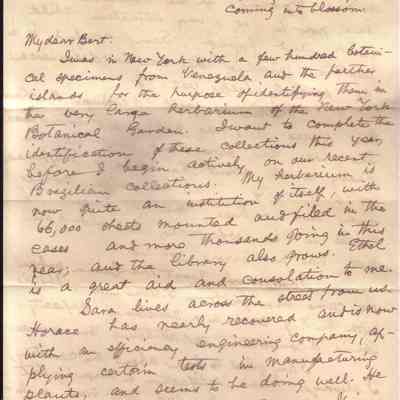 coming into blossom.
My dear Bert:
I was in New York with a few hundred botani-
cal specimens from Venezuela and the farther
islands for the purpose of identifying them in
the very large herbarium of the New York
Botanical Garden. I want to complete the
identification of these collections this year,
before I begin actively on our recent
Brazilian collections. My herbarium is
now quite an institution of itself, with
66,000 sheets mounted and filed in the
cases and more thousands going in this
year; and the library also grows. Ethel
is a great aid and consolation to me.
Sara lives across the street from us.
Horace has nearly recovered and is now
with an efficiency engineering company, ap-
plying certain tests in manufacturing
plants, and seems to be doing well. He